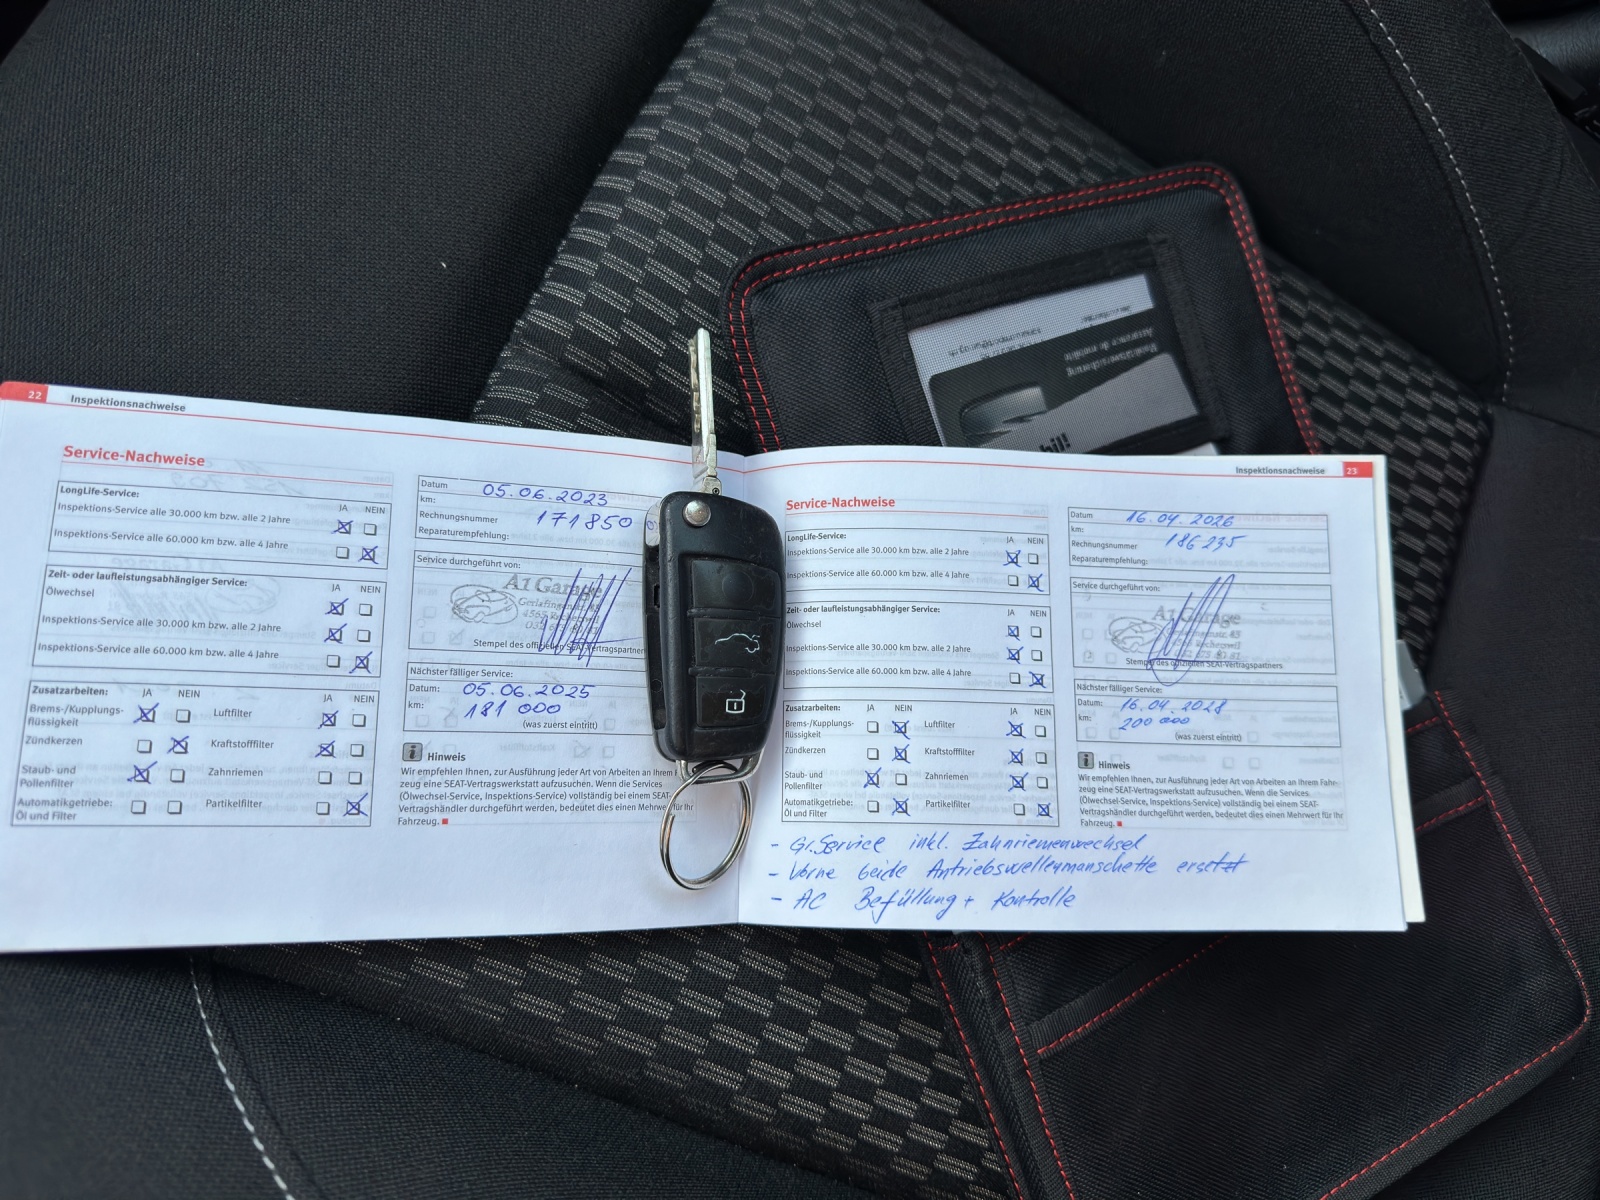 22 Inspektionsnachweise
Service-Nachweise
LongLife-Service:
JA NEIN
Inspektions-Service alle 30.000 km bzw. alle 2 Jahre
Inspektions-Service alle 60.000 km bzw. alle 4 Jahre
Zeit- oder laufleistungsabhängiger Service:
JA NEIN
Ölwechsel
Inspektions-Service alle 30.000 km bzw. alle 2 Jahre
Inspektions-Service alle 60.000 km bzw. alle 4 Jahre
Zusatzarbeiten: JA NEIN JA NEIN
Brems-/Kupplungs-
flüssigkeit
Luftfilter
Zündkerzen Kraftstofffilter
Staub- und
Pollenfilter
Zahnriemen
Automatikgetriebe:
Öl und Filter
Partikelfilter
Datum 05.06.2023
km: 171850
Rechnungsnummer
Reparaturempfehlung:
Service durchgeführt von:
A1 Garage
Stempel des offiziellen SEAT-Vertragspartners
Nächster fälliger Service:
Datum: 05.06.2025
km: 181 000
(was zuerst eintritt)
Hinweis
Wir empfehlen Ihnen, zur Ausführung jeder Art von Arbeiten an Ihrem
zeug eine SEAT-Vertragswerkstatt aufzusuchen. Wenn die Services
(Ölwechsel-Service, Inspektions-Service) vollständig bei einem SEAT-
Vertragshändler durchgeführt werden, bedeutet dies einen Mehrwert für Ihr
Fahrzeug.
Inspektionsnachweise 23
Service-Nachweise
LongLife-Service: JA NEIN
Inspektions-Service alle 30.000 km bzw. alle 2 Jahre
Inspektions-Service alle 60.000 km bzw. alle 4 Jahre
Zeit- oder laufleistungsabhängiger Service: JA NEIN
Ölwechsel
Inspektions-Service alle 30.000 km bzw. alle 2 Jahre
Inspektions-Service alle 60.000 km bzw. alle 4 Jahre
Zusatzarbeiten: JA NEIN JA NEIN
Brems-/Kupplungs-
flüssigkeit
Luftfilter
Zündkerzen Kraftstofffilter
Staub- und
Pollenfilter
Zahnriemen
Automatikgetriebe:
Öl und Filter
Partikelfilter
Datum 16.04.2026
km: 186235
Rechnungsnummer
Reparaturempfehlung:
Service durchgeführt von:
A1 Garage
Stempel des offiziellen SEAT-Vertragspartners
Nächster fälliger Service:
Datum: 16.04.2028
km: 200 000
(was zuerst eintritt)
Hinweis
Wir empfehlen Ihnen, zur Ausführung jeder Art von Arbeiten an Ihrem Fahr-
zeug eine SEAT-Vertragswerkstatt aufzusuchen. Wenn die Services
(Ölwechsel-Service, Inspektions-Service) vollständig bei einem SEAT-
Vertragshändler durchgeführt werden, bedeutet dies einen Mehrwert für Ihr
Fahrzeug.
- Gr. Service inkl. Zahnriemenwechsel
- Vorne beide Antriebswellenmanschette ersetzt
- AC Befüllung + Kontrolle
Mobilitätsversicherung
Assurance de mobilité